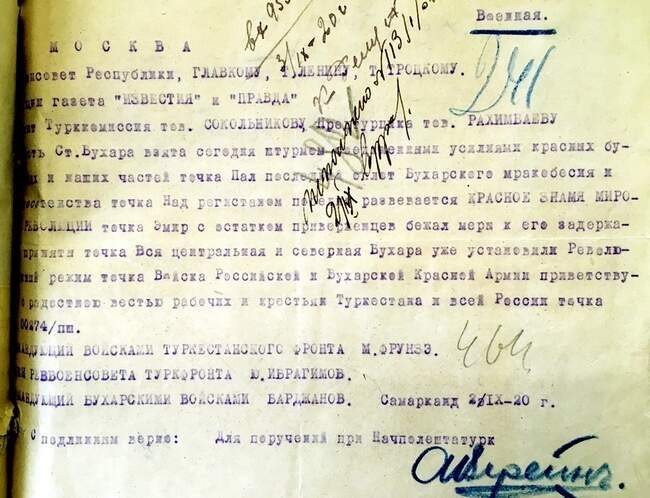 Военная.
вх 955
3/IX-20 г
М О С К В А
нсовет Республики, ГЛАВКОМУ, Т.ЛЕНИНУ, Т.ТРОЦКОМУ.
ции газета "ИЗВЕСТИЯ" и "ПРАВДА"
нт Турккомиссия тов. СОКОЛЬНИКОВУ, тов. РАХИМБАЕВУ
ть Ст.Бухара взята сегодня штурмом усилиями красных бу-
х и наших частей точка Пал оплот Бухарского мракобесия и
точка Над регистаном развевается КРАСНОЕ ЗНАМЯ МИРО-
РЕВОЛЮЦИИ точка Эмир с остатком приверженцев бежал меры к его задержа-
приняты точка Вся центральная и северная Бухара уже установили Револю-
ный режим точка Войска Российской и Бухарской Красной Армии приветству-
радостною вестью рабочих и крестьян Туркестана и всей России точка
00274/пш.
АНДУЮЩИЙ ВОЙСКАМИ ТУРКЕСТАНСКОГО ФРОНТА М.ФРУНЗЭ.
РЕВВОЕНСОВЕТА ТУРКФРОНТА Ю.ИБРАГИМОВ.
АНДУЮЩИЙ БУХАРСКИМИ ВОЙСКАМИ БАРДЖАНОВ. Самарканд 2/IX-20 г.
С подлинным верно: Для поручений при Начполештатурк